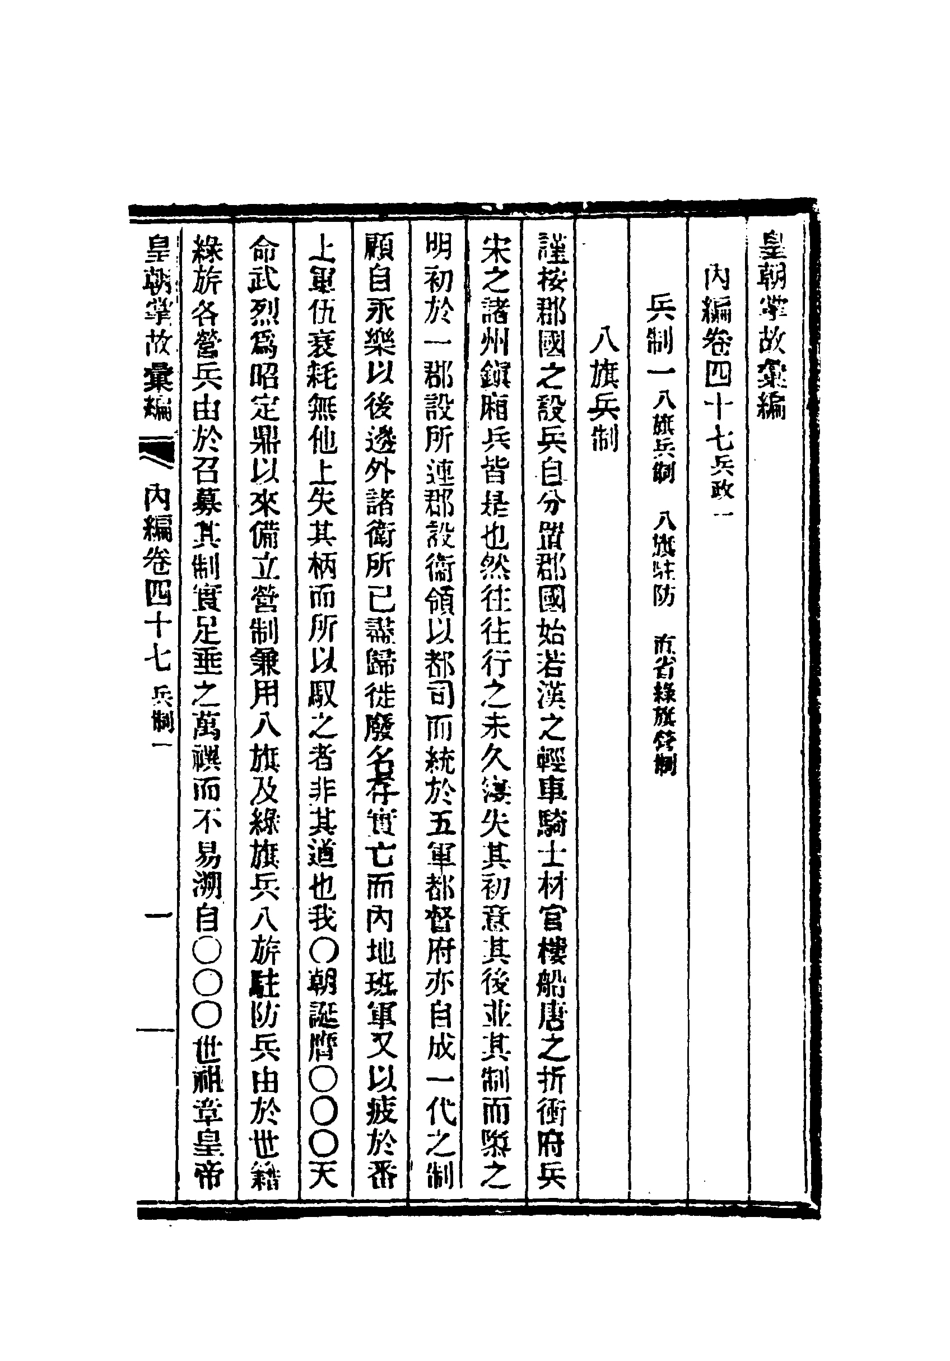 皇朝掌故彙編
內編卷四十七兵政一
兵制一八旗兵制 八旗駐防 直省綠旗營制
八旗兵制
謹按郡國之設兵自分置郡國始若漢之輕車騎士材官樓船唐之折衝府兵
宋之諸州鎭廂兵皆是也然往往行之未久寖失其初意其後並其制而隳之
明初於一郡設所連郡設衞領以都司而統於五軍都督府亦自成一代之制
顧自永樂以後邊外諸衞所已盡歸徙廢名存實亡而內地班軍又以疲於番
上軍伍衰耗無他上失其柄而所以馭之者非其道也我〇朝誕膺〇〇〇天
命武烈爲昭定鼎以來備立營制兼用八旗及綠旗兵八旂駐防兵由於世籍
綠旂各營兵由於召募其制實足垂之萬禩而不易溯自〇〇〇世祖章皇帝
皇朝掌故彙編 內編卷四十七 兵制一 一